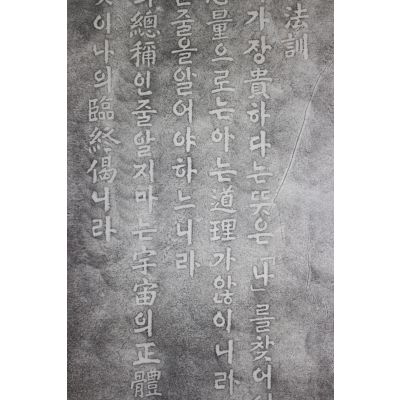 法訓
가장貴하다는뜻은「나」를찾어
量으로는아는道理가않이니라
줄을알어야하느니라
總稱인줄알지마는宇宙의正體
이나의臨終偈니라